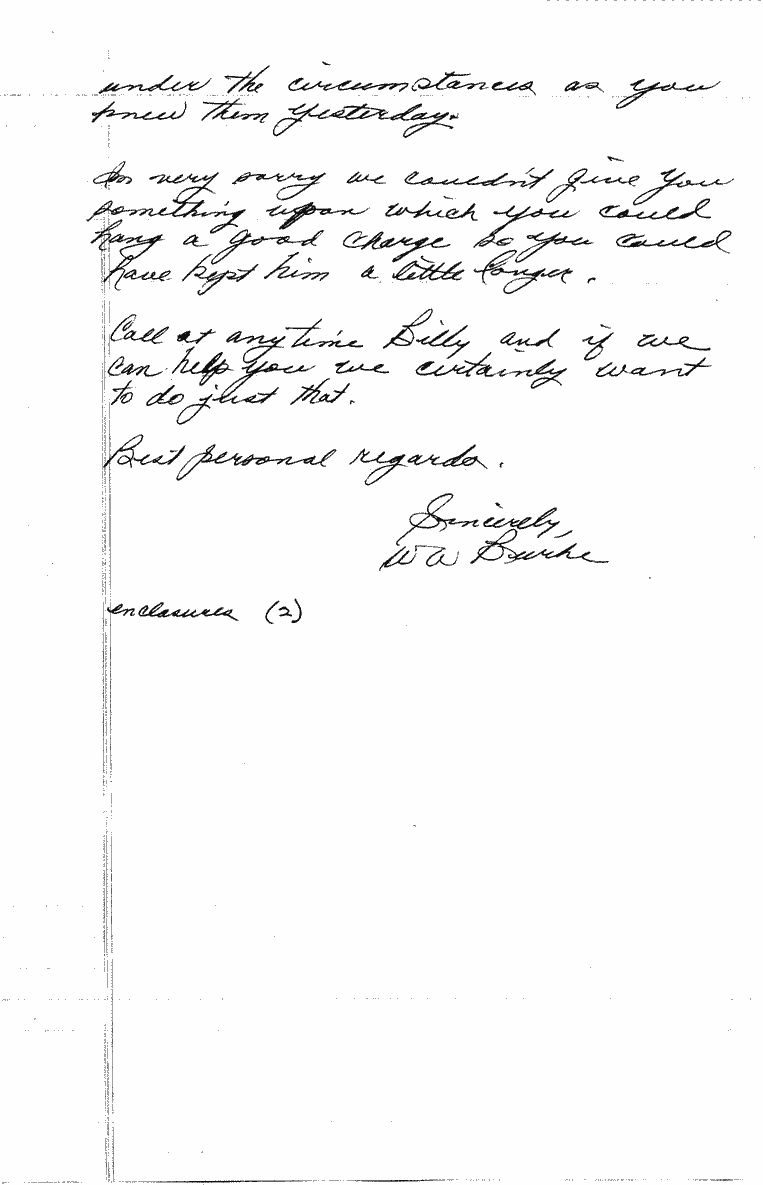 under the circumstances as you
knew them yesterday.
Im very sorry we couldn't give you
something upon which you could
hang a good charge so you could
have kept him a little longer.
Call at anytime Billy and if we
can help you we certainly want
to do just that.
Best personal regards.
Sincerely,
W A Burke
enclosures (2)